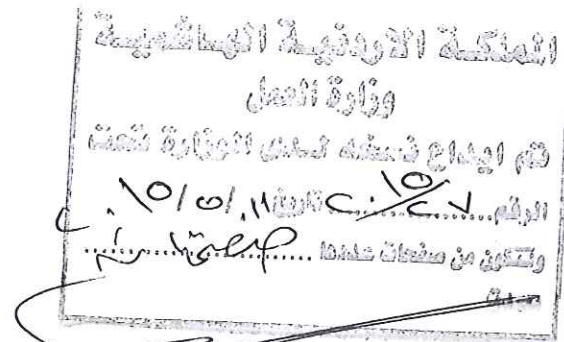 المملكة الاردنية الهاشمية
وزارة العمل
تم ايداع نسخه لدى الوزارة تحت
الرقم ٢٧/٢٠١٥ تاريخ ١١/٥/٢٠١٥
وتتكون من صفحات عددها